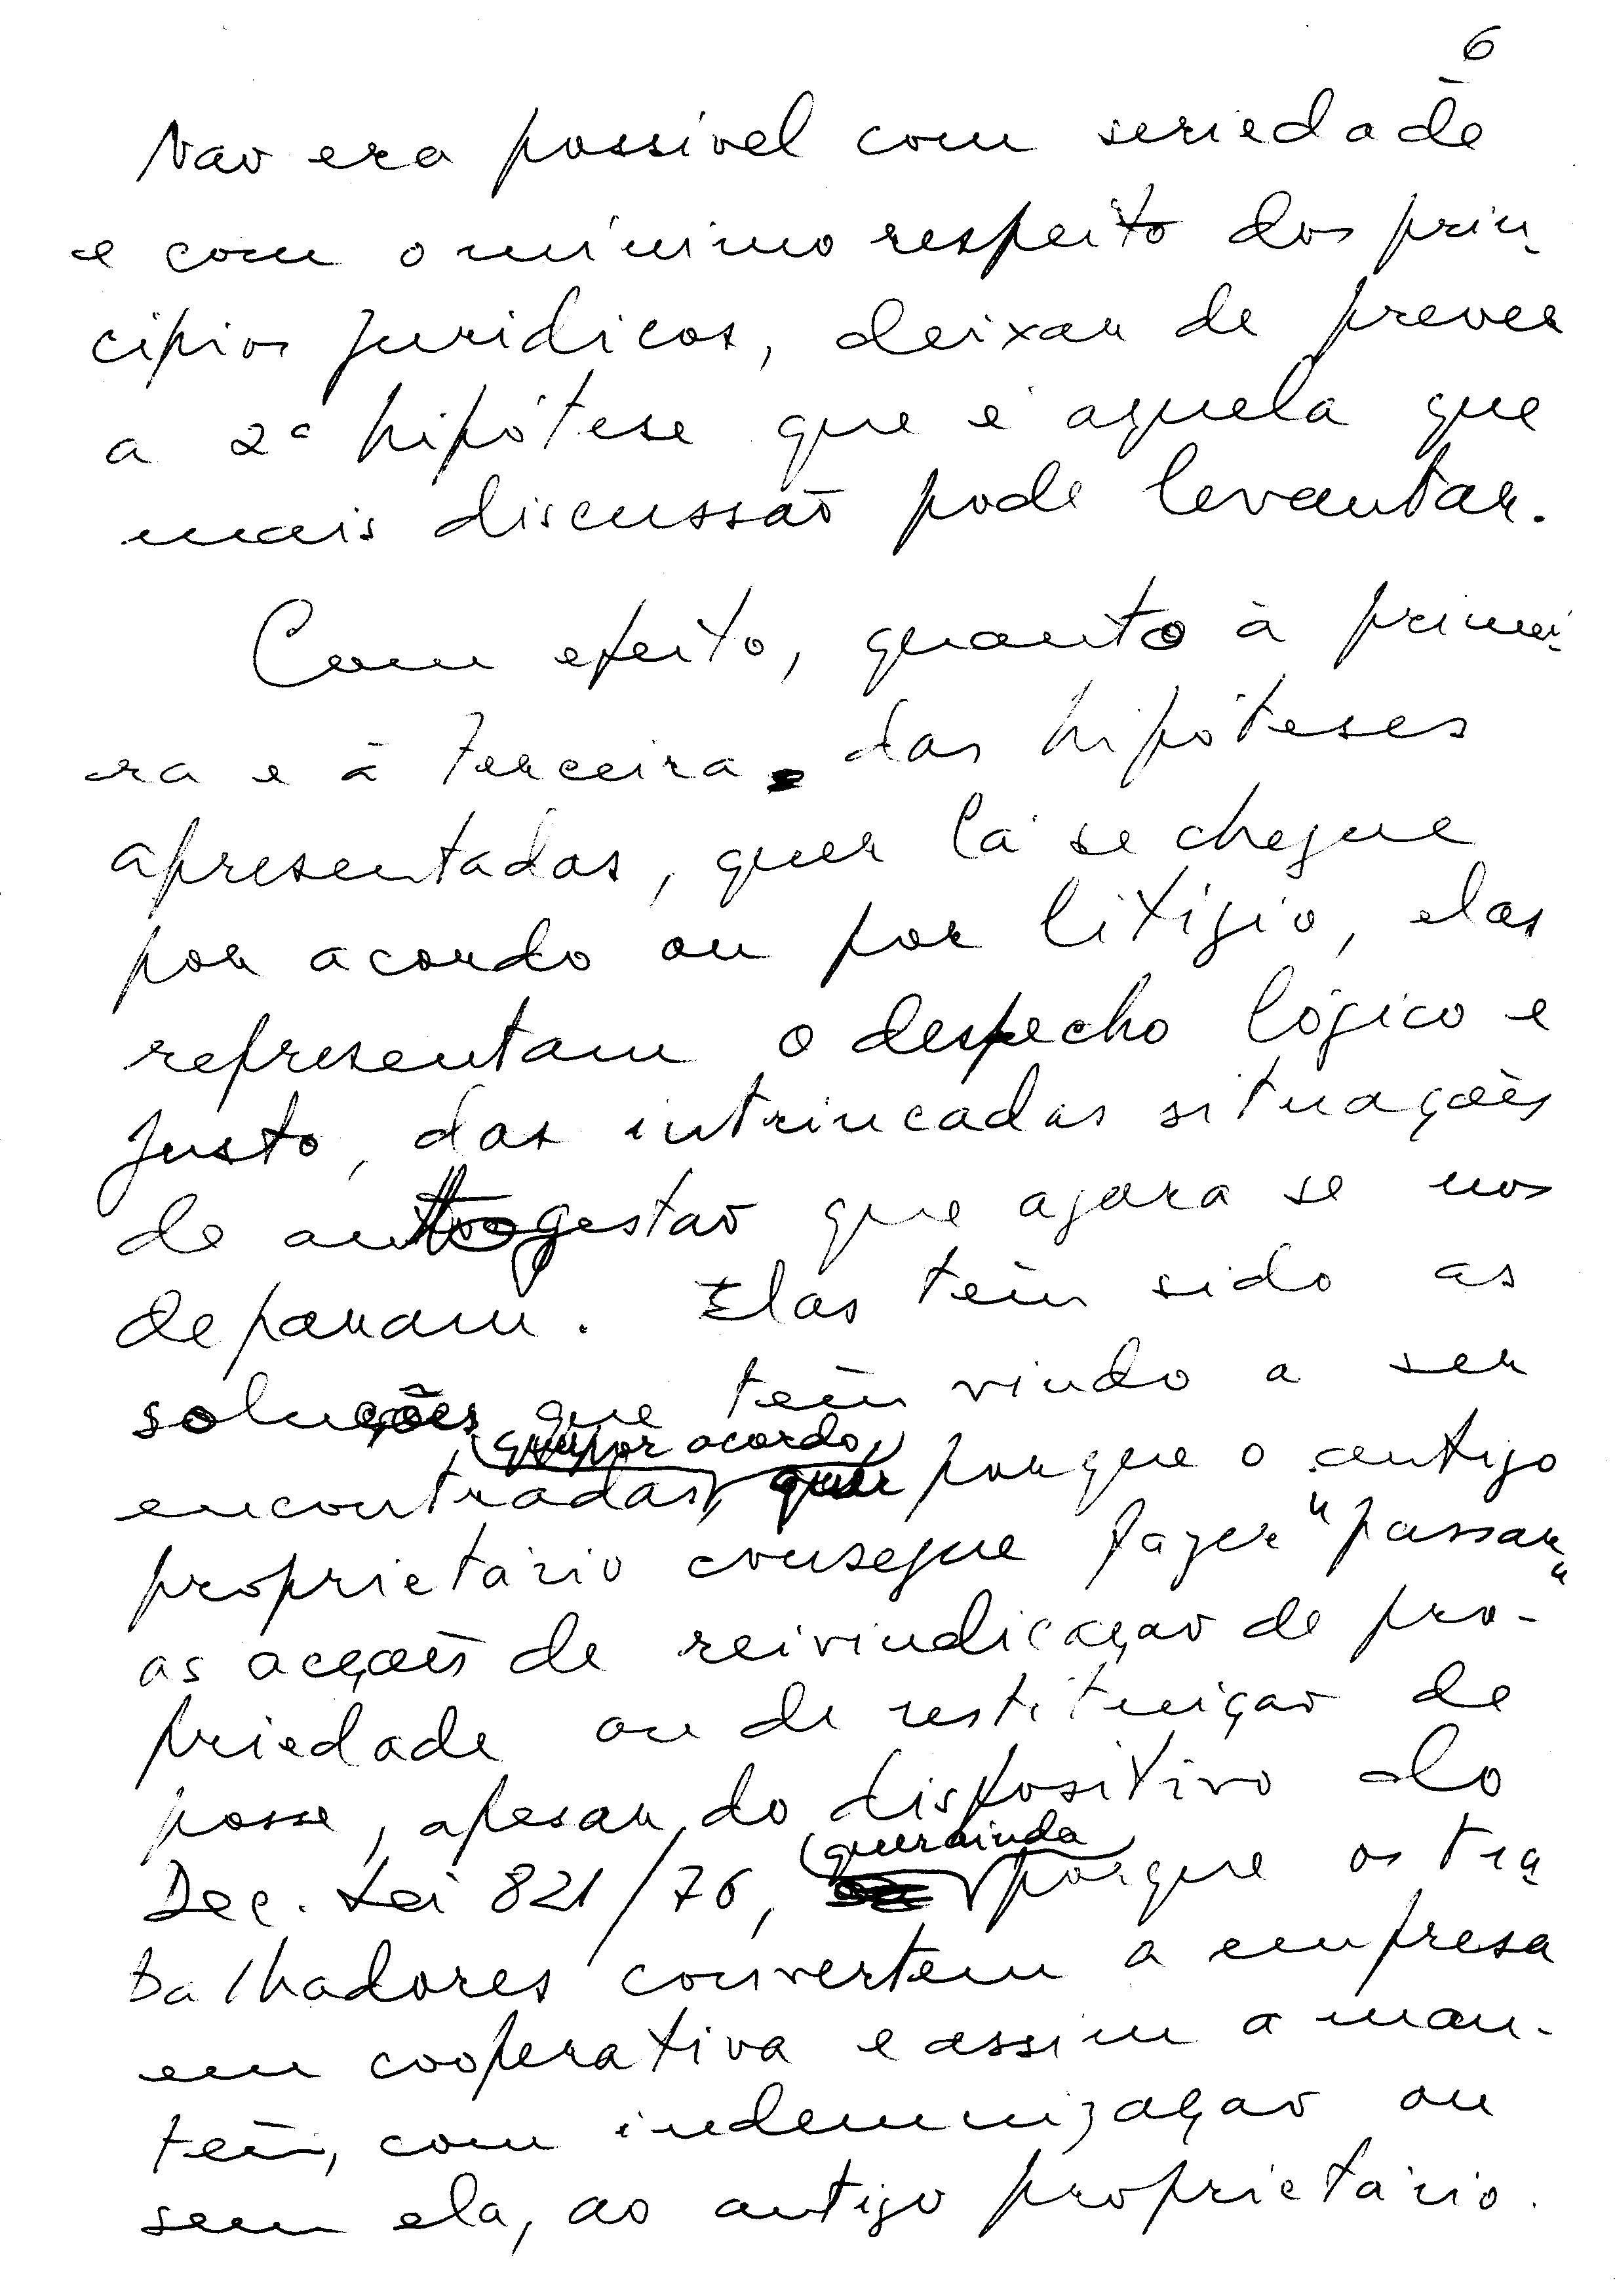 6
Não era possível com seriedade
e com o mínimo respeito dos prin-
cípios jurídicos, deixar de prever
a 2ª hipótese que é aquela que
mais discussão pode levantar.
Com efeito, quanto à primei-
ra e à terceira das hipóteses
apresentadas, quer lá se chegue
por acordo ou por litígio, elas
representam o despecho lógico e
justo, das intrincadas situações
de autogestão que agora se nos
deparam. Elas têm sido as
soluções que têm vindo a ser
quer por acordo,
encontradas, quer porque o antigo
proprietário consegue fazer "passar"
as acções de reivindicação de pro-
priedade ou de restituição de
posse, apesar do dispositivo do
quer ainda
Dec. Lei 821/76, porque os tra-
balhadores convertem a empresa
em cooperativa e assim a man-
têm, com indemnização ou
sem ela, ao antigo proprietário.